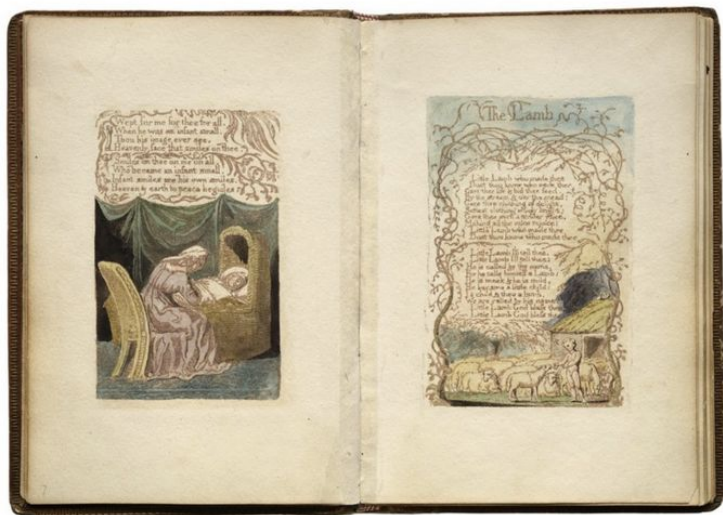 Wept for me for thee for all,
When he was an infant small.
Thou his image ever see,
Heavenly face that smiles on thee.
Smiles on thee on me on all,
Who became an infant small,
Infant smiles are his own smiles,
Heaven & earth to peace beguiles.
The Lamb
Little Lamb who made thee
Dost thou know who made thee
Gave thee life & bid thee feed,
By the stream & o'er the mead;
Gave thee clothing of delight,
Softest clothing wooly bright;
Gave thee such a tender voice,
Making all the vales rejoice:
Little Lamb who made thee
Dost thou know who made thee
Little Lamb I'll tell thee,
Little Lamb I'll tell thee;
He is called by thy name,
For he calls himself a Lamb:
He is meek & he is mild,
He became a little child:
I a child & thou a lamb,
We are called by his name.
Little Lamb God bless thee
Little Lamb God bless thee